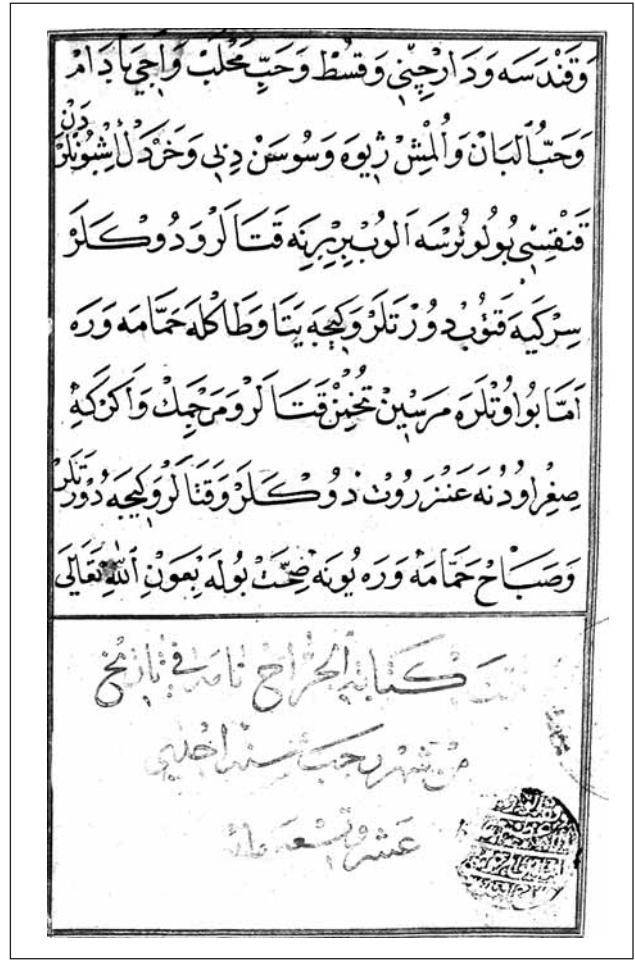 وَقُنْدَسَه وَدَارْچِنِي وَقُسْطْ وَحَبِّ مَحْلَبْ وَاَجِي بَادَامْ
وَحَبُّ الْبَانْ وَاُلْمِشْ ژِيوَه وَسُوسَنْ دِبِي وَخَرْدَلْ اِشْبُونْلَرْدَنْ
قَنْقِسْنِي بُولُونُرْسَه اَلُوبْ بِرْبِرِنَه قَتَالَرْ وَدُوكَلَرْ
سِرْكَيَه قَتُوبْ دُورْتَلَرْ وَكِيجَه يَتَا وَطَاكْلَه حَمَّامَه وَرَه
اَمَّا بُو اُوتْلَرَه مَرْسِينْ تُخْمِنْ قَتَالَرْ وَمَرْجِمَكْ وَاَكَرْ كَهْ
صِغِرْ اُودُنَه عَنْزَرُوتْ دُوكَلَرْ وَقَتَالَرْ وَكِيجَه دُورْتَلَرْ
وَصَبَاحْ حَمَّامَه وَرَه يُونَه صِحَّتْ بُولَه بِعَوْنِ اللّٰهِ تَعَالَى
تمت كتابة الجراح نامه في تاريخ
من شهر رجب سنه احدي
عشر وتسعمائه